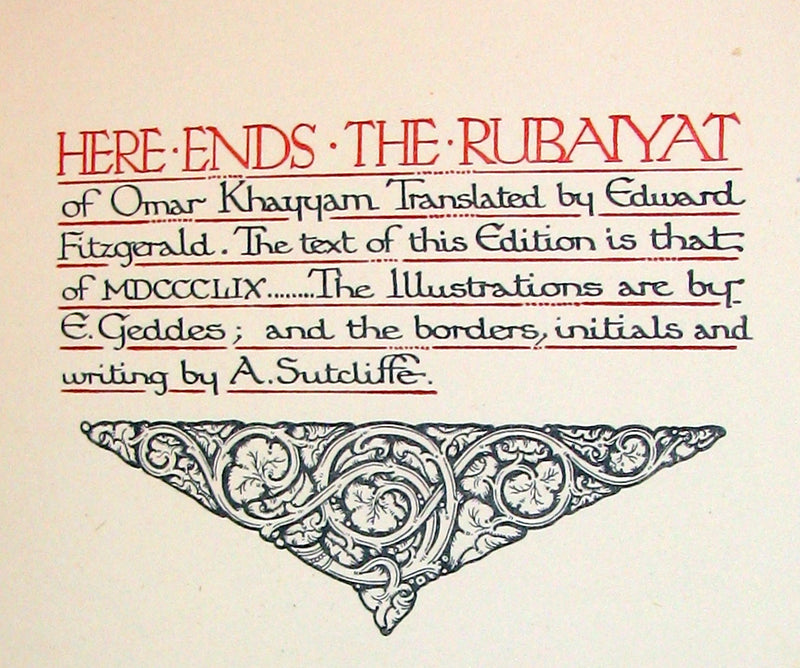 HERE·ENDS·THE·RUBAIYAT
of Omar Khayyam Translated by Edward
Fitzgerald. The text of this Edition is that
of MDCCCLIX........The Illustrations are by
E. Geddes; and the borders, initials and
writing by A. Sutcliffe.